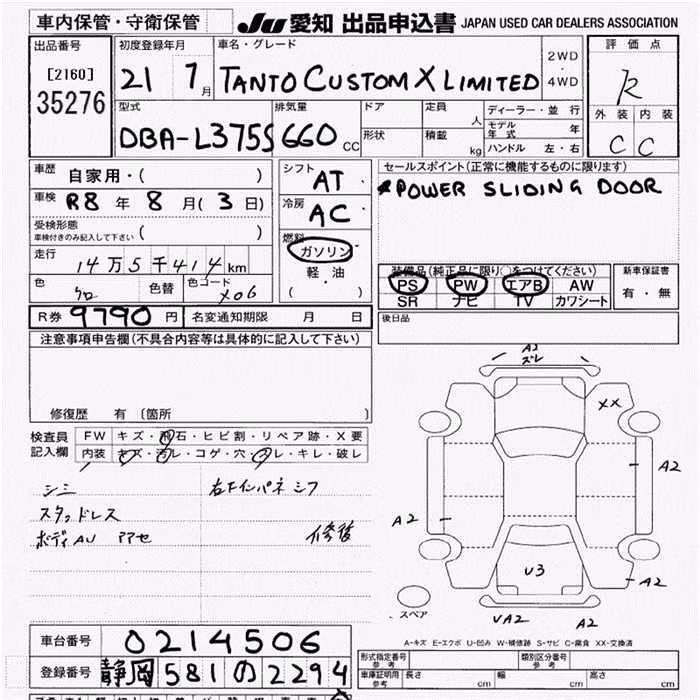 車内保管・守衛保管 JU 愛知 出品申込書 JAPAN USED CAR DEALERS ASSOCIATION
出品番号 初度登録年月 車名・グレード 2WD・4WD 評価点
[2160] 35276 21 7月 TANTO CUSTOM X LIMITED R
型式 排気量 ドア 定員 人 ディーラー・並行 外装 内装
DBA-L375S 660 CC 形状 積載 kg モデル年式 年 C C
ハンドル 左・右
車歴 自家用・( ) シフト AT セールスポイント(正常に機能するものに限ります)
車検 R8年8月(3日) 冷房 AC POWER SLIDING DOOR
受検形態 ( )
車検付きのみ記入して下さい
燃料 ガソリン 軽・油 ( )
走行 14万5千414km
装備品(純正品に限り○をつけてください) 新車保証書
PS PW エアB AW 有・無
SR ナビ TV カワシート
色 クロ 色替 色コード X06
R券 9790円 名変通知期限 月 日 後日品
注意事項申告欄(不具合内容等は具体的に記入して下さい)
修復歴 有 〔箇所
検査員記入欄 FW キズ・飛石・ヒビ割・リペア跡・X要
内装 キズ・汚レ・コゲ・穴・スレ・キレ・破レ
シミ 右下インパネ
スタッドレス
ボディAU アセ 修後
A2
ズレ
XX
A2
A2
U3
A2
UA2 A2
スペア
A-キズ E-エクボ U-凹み W-補修跡 S-サビ C-腐食 XX-交換済
車台番号 0214506
登録番号 静岡 581 の 2294
型式指定番号 参考 類別区分番号 参考
車庫証明用 参考 長さ cm 幅 cm 高さ cm